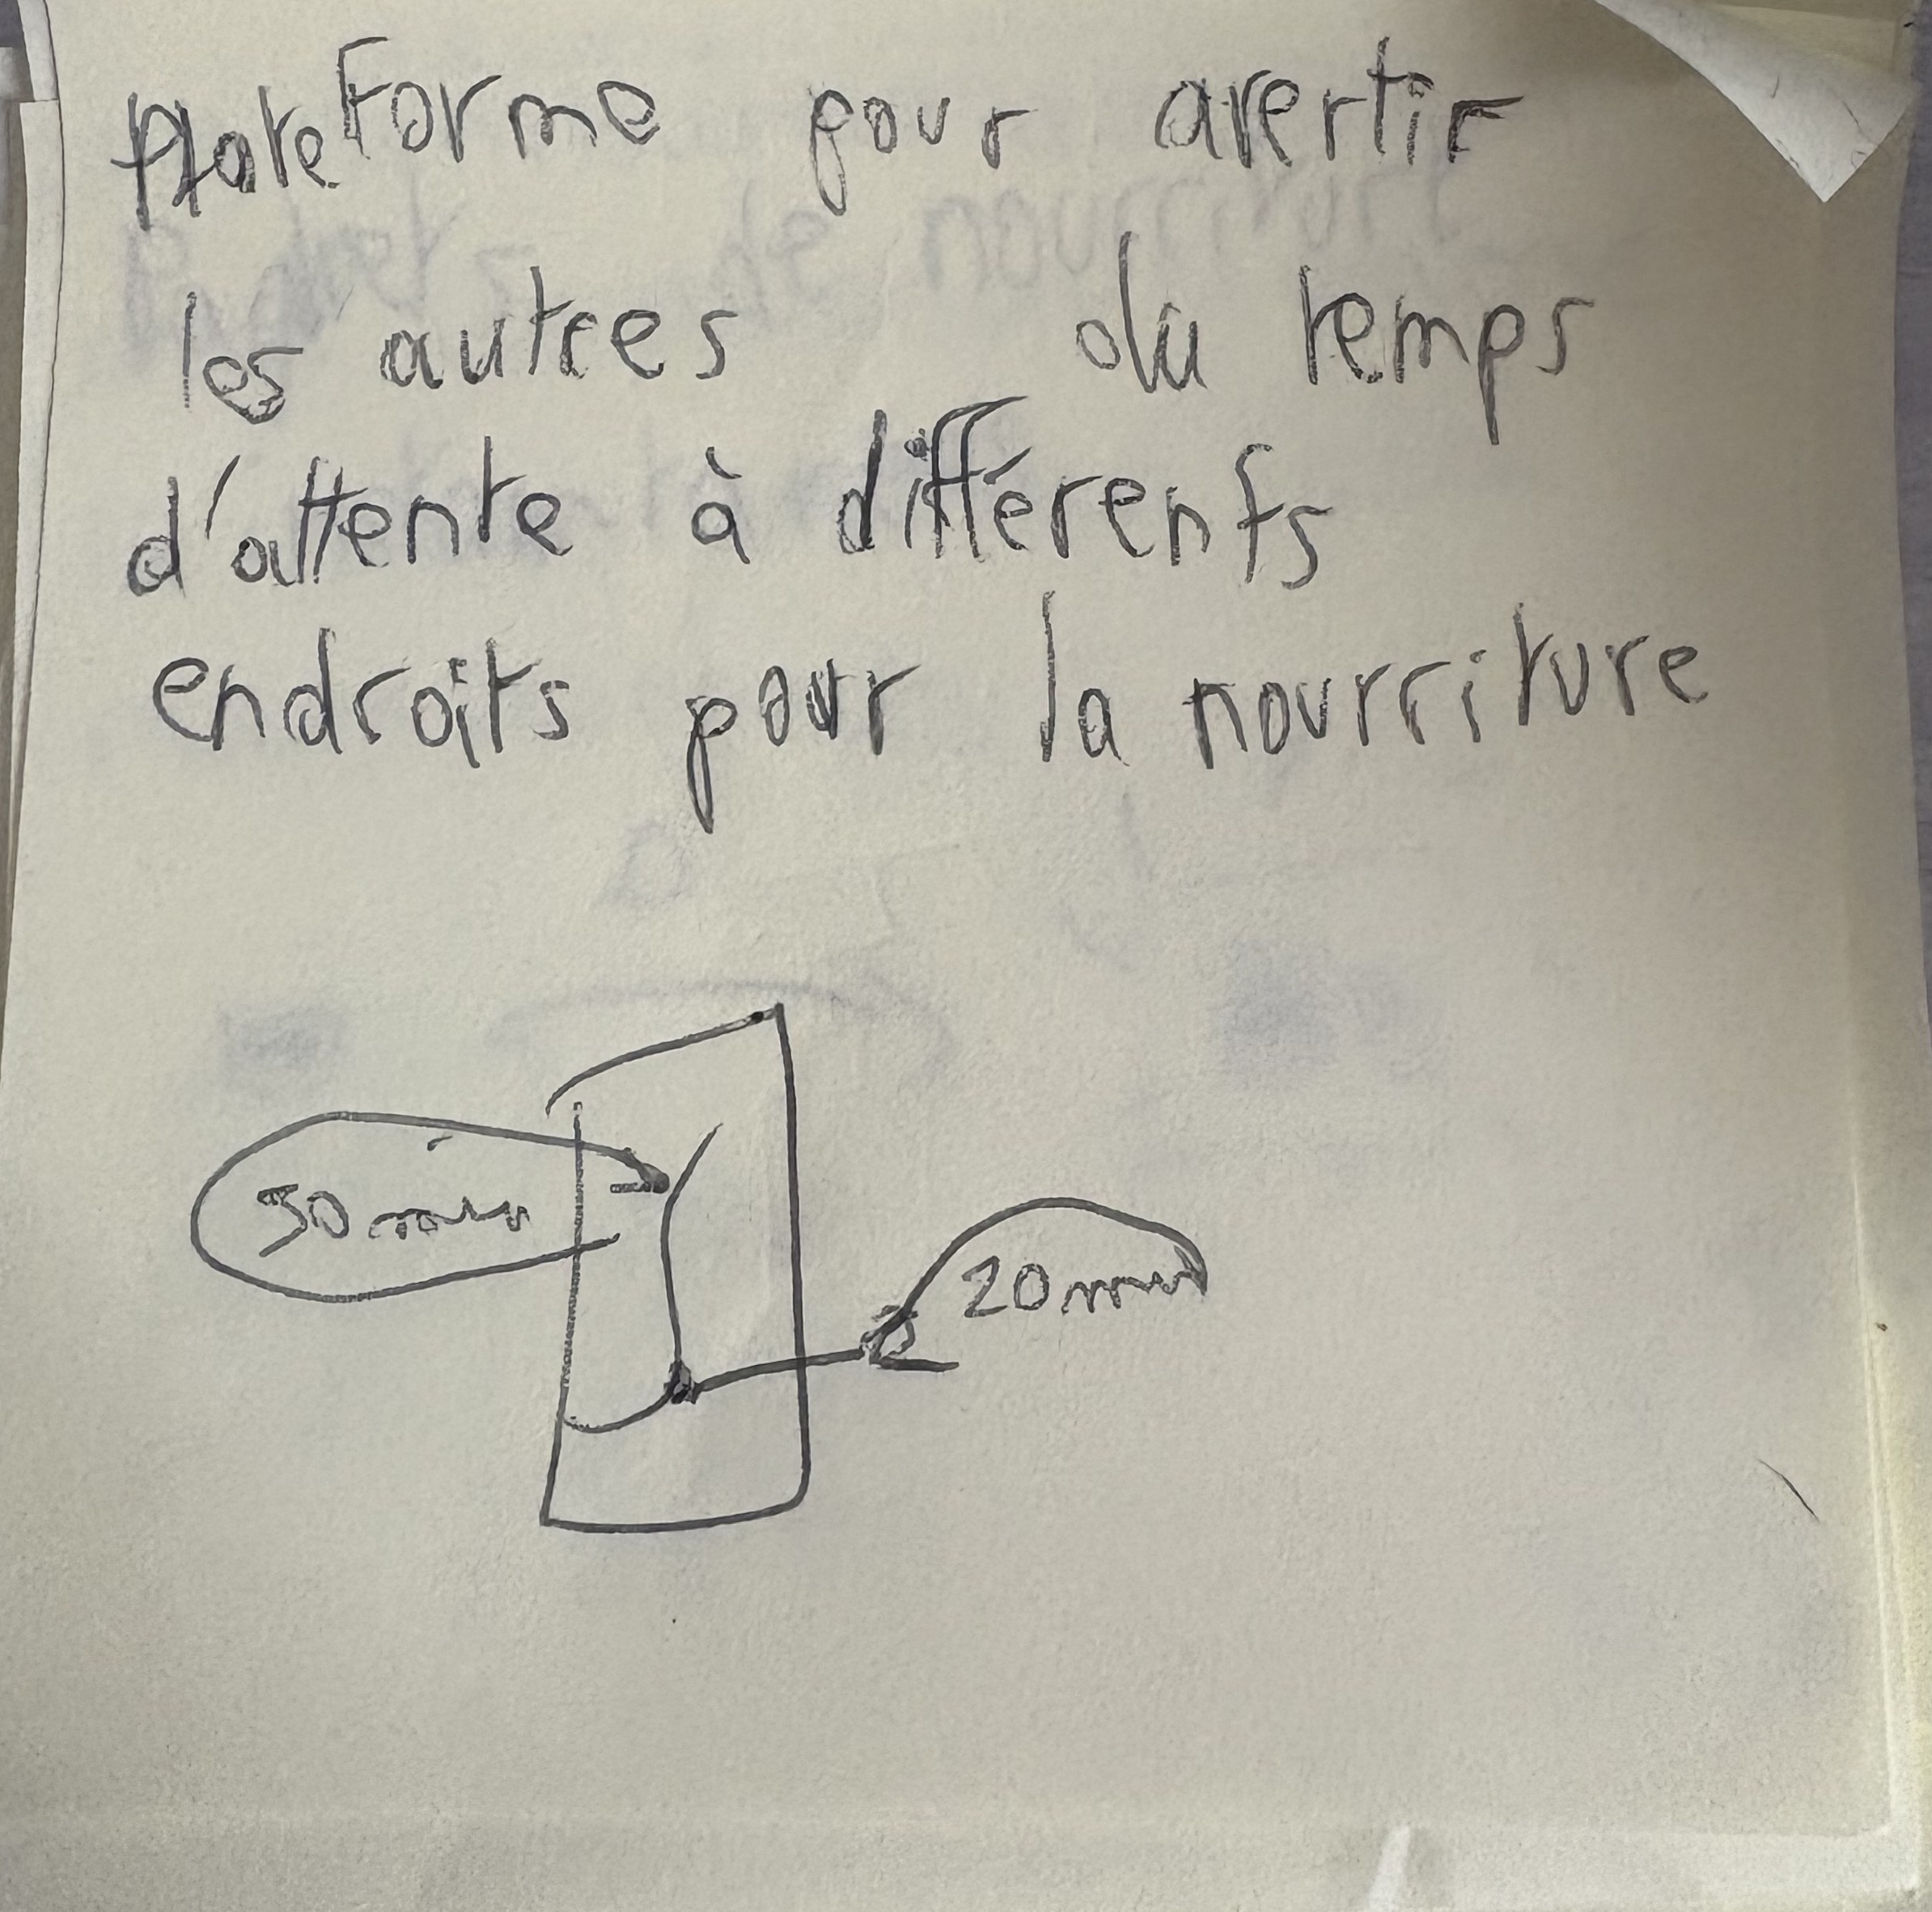 plateForme pour avertir
les autres du temps
d'attente à différents
endroits pour la nourriture
30 min
20 min